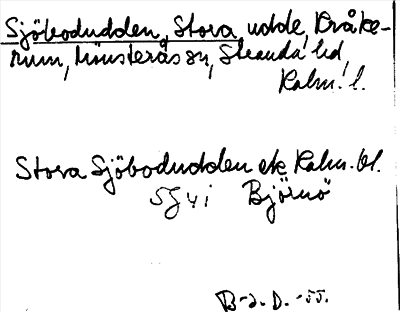 Sjöbodudden, Stora, udde, Kråke-
rum, Mönsterås sn, Stranda hd,
Kalm. l.
Stora Sjöbodudden ek Kalm. bl.
5G4i Björnö
B-a. D. -55.